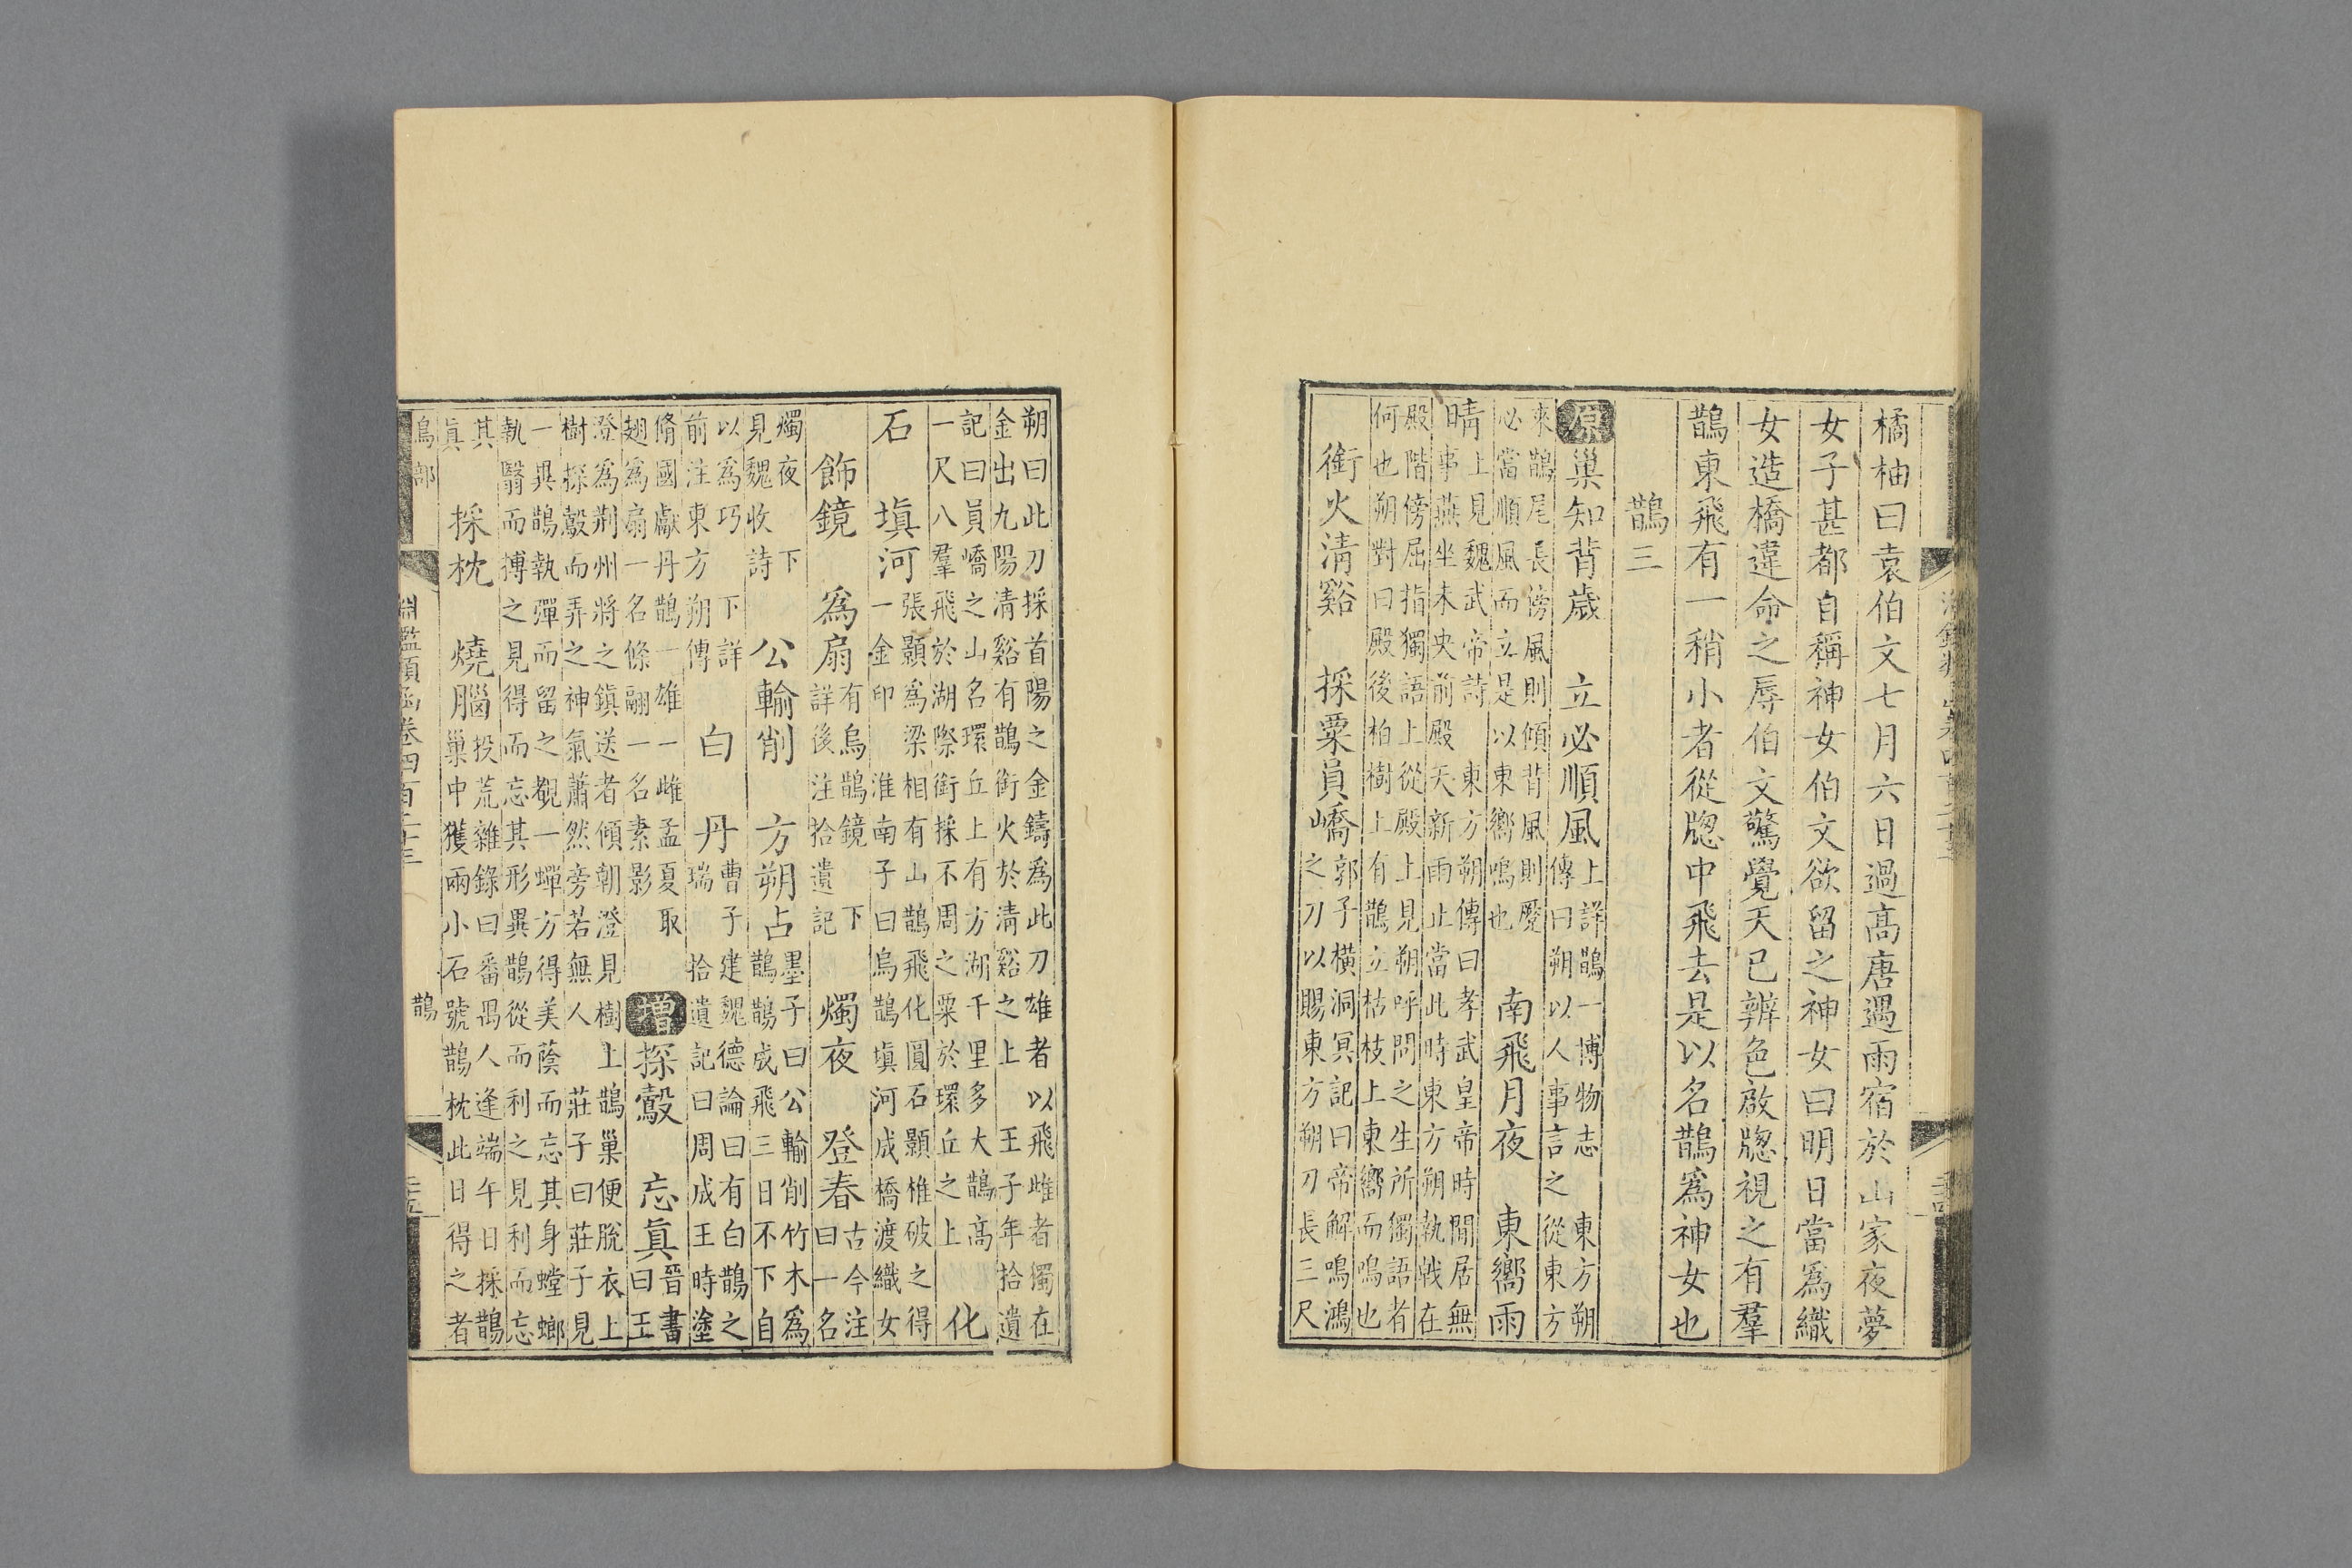 橘柚曰袁伯文七月六日過高唐遇雨宿於山家夜夢
女子甚都自稱神女伯文欲留之神女曰明日當爲織
女造橋違命之辱伯文驚覺天已辨色啟牕視之有羣
鵲東飛有一稍小者從牕中飛去是以名鵲爲神女也
鵲三
原巢知背歲 立必順風
上詳鵲一博物志 東方朔
傳曰朔以人事言之從東方
來鵲尾長滂風則傾背風則蹙
必當順風而立是以東嚮鳴也
南飛月夜 東嚮雨
晴
上見魏武帝詩 東方朔傳曰孝武皇帝時閒居無
事燕坐未央前殿天新雨止當此時東方朔執戟在
殿階傍屈指獨語上從殿上見朔呼問之生所獨語者
何也朔對曰殿後柏樹上有鵲立枯枝上東嚮而鳴也
銜火清谿 採粟員嶠
郭子橫洞冥記曰帝解鳴鴻
之刀以賜東方朔刀長三尺
朔曰此刀採首陽之金鑄爲此刀雄者以飛雌者獨在
金出九陽清谿有鵲銜火於清谿之上 王子年拾遺
記曰員嶠之山名環丘上有方湖千里多大鵲高
一尺八羣飛於湖際銜採不周之粟於環丘之上
化
石 塡河
張顥爲梁相有山鵲飛化圓石顥椎破之得
一金印 淮南子曰烏鵲塡河成橋渡織女
飾鏡 爲扇
有烏鵲鏡下
詳後注拾遺記
燭夜 登春
古今注
曰一名
燭夜下
見魏收詩
公輸削 方朔占
墨子曰公輸削竹木爲
鵲鵲成飛三日不下自
以爲巧下詳
前注東方朔傳
白 丹
曹子建魏德論曰有白鵲之
瑞 拾遺記曰周成王時塗
脩國獻丹鵲一雄一雌孟夏取
翅爲扇一名條翮一名素影
增探鷇 忘眞
晉書
曰王
澄爲荆州將之鎮送者傾朝澄見樹上鵲巢便脫衣上
樹探鷇而弄之神氣蕭然旁若無人 莊子曰莊子見
一異鵲執彈而留之覩一蟬方得美蔭而忘其身螳螂
執翳而搏之見得而忘其形異鵲從而利之見利而忘
其
眞
採枕 燒腦
投荒雜錄曰番禺人逢端午日採鵲
巢中獲兩小石號鵲枕此日得之者
鳥部
淵鑑類函卷四百二十三
鵲